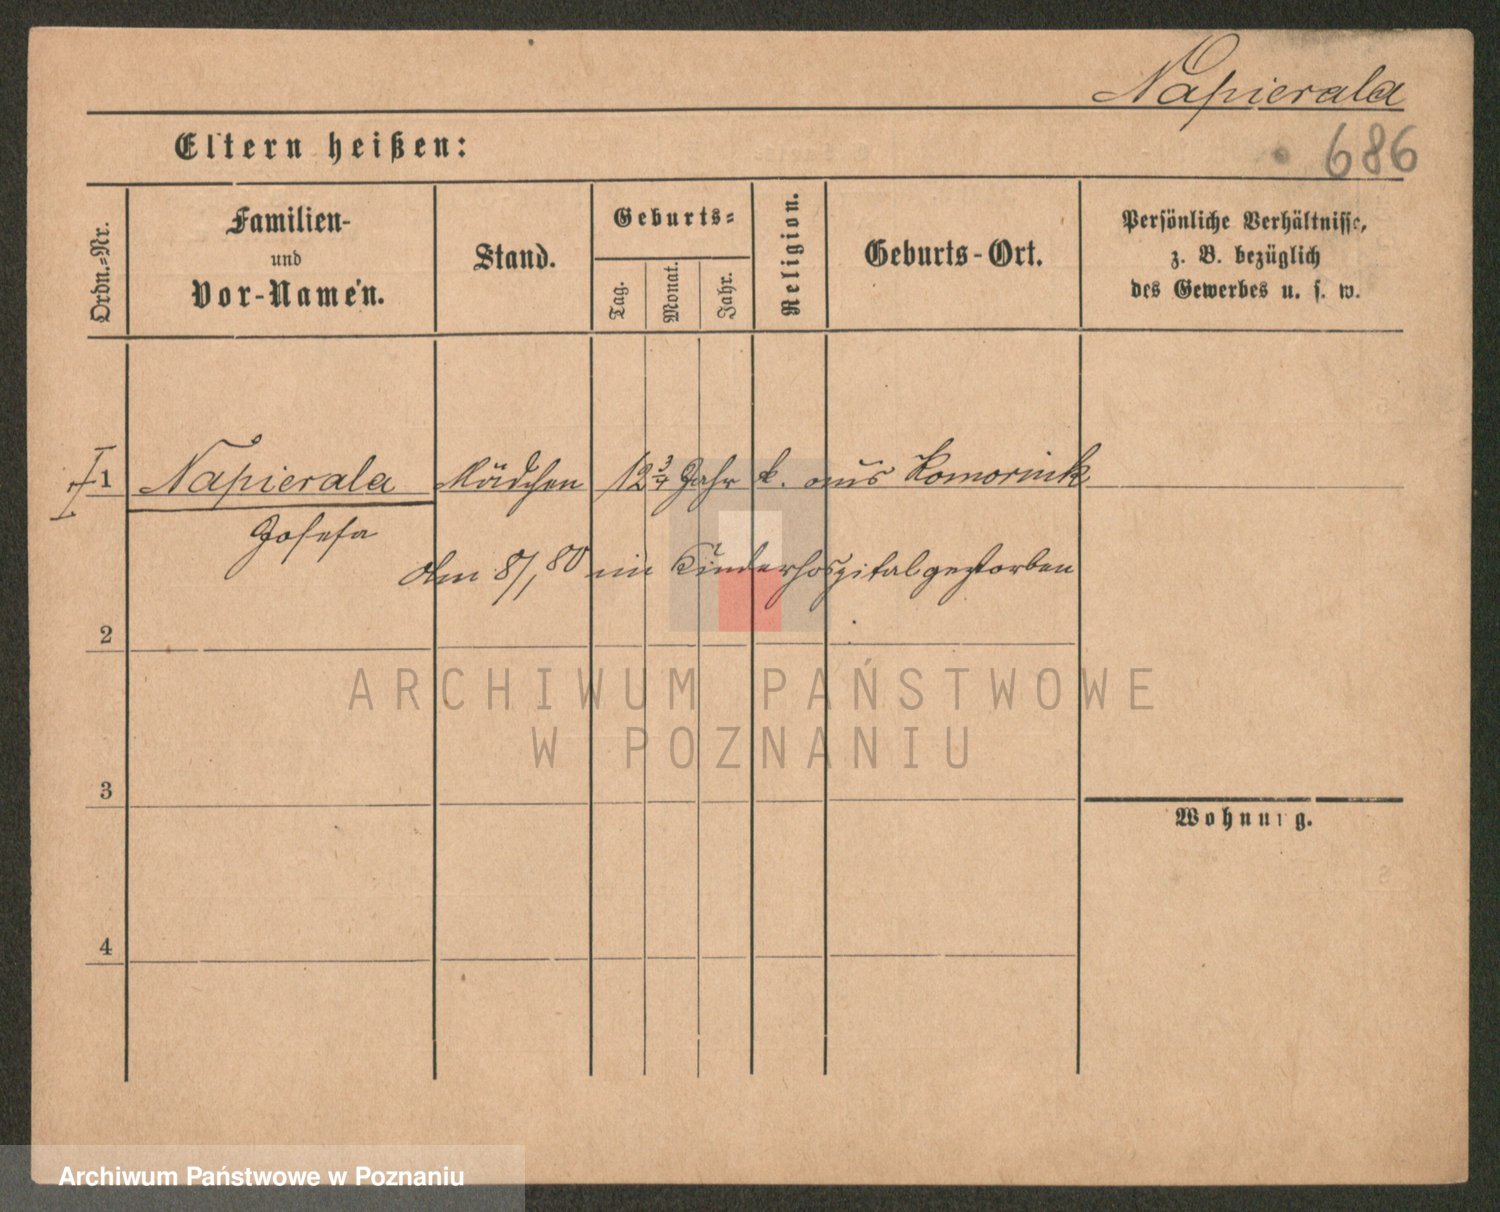 Napierala
686
Eltern heißen:
Ordn.=Nr.
Familien-
und
Vor-Namen.
Stand.
Geburts=
Tag.
Monat.
Jahr.
Religion.
Geburts-Ort.
Persönliche Verhältnisse,
z. B. bezüglich
des Gewerbes u. s. w.
1 Napierala Mädchen 12 3/4 Jahr k. aus Komornik
Josefa
am 8/, 80 im Kinderhospital gestorben
2
ARCHIWUM PAŃSTWOWE
W POZNANIU
3
Wohnung.
4
Archiwum Państwowe w Poznaniu